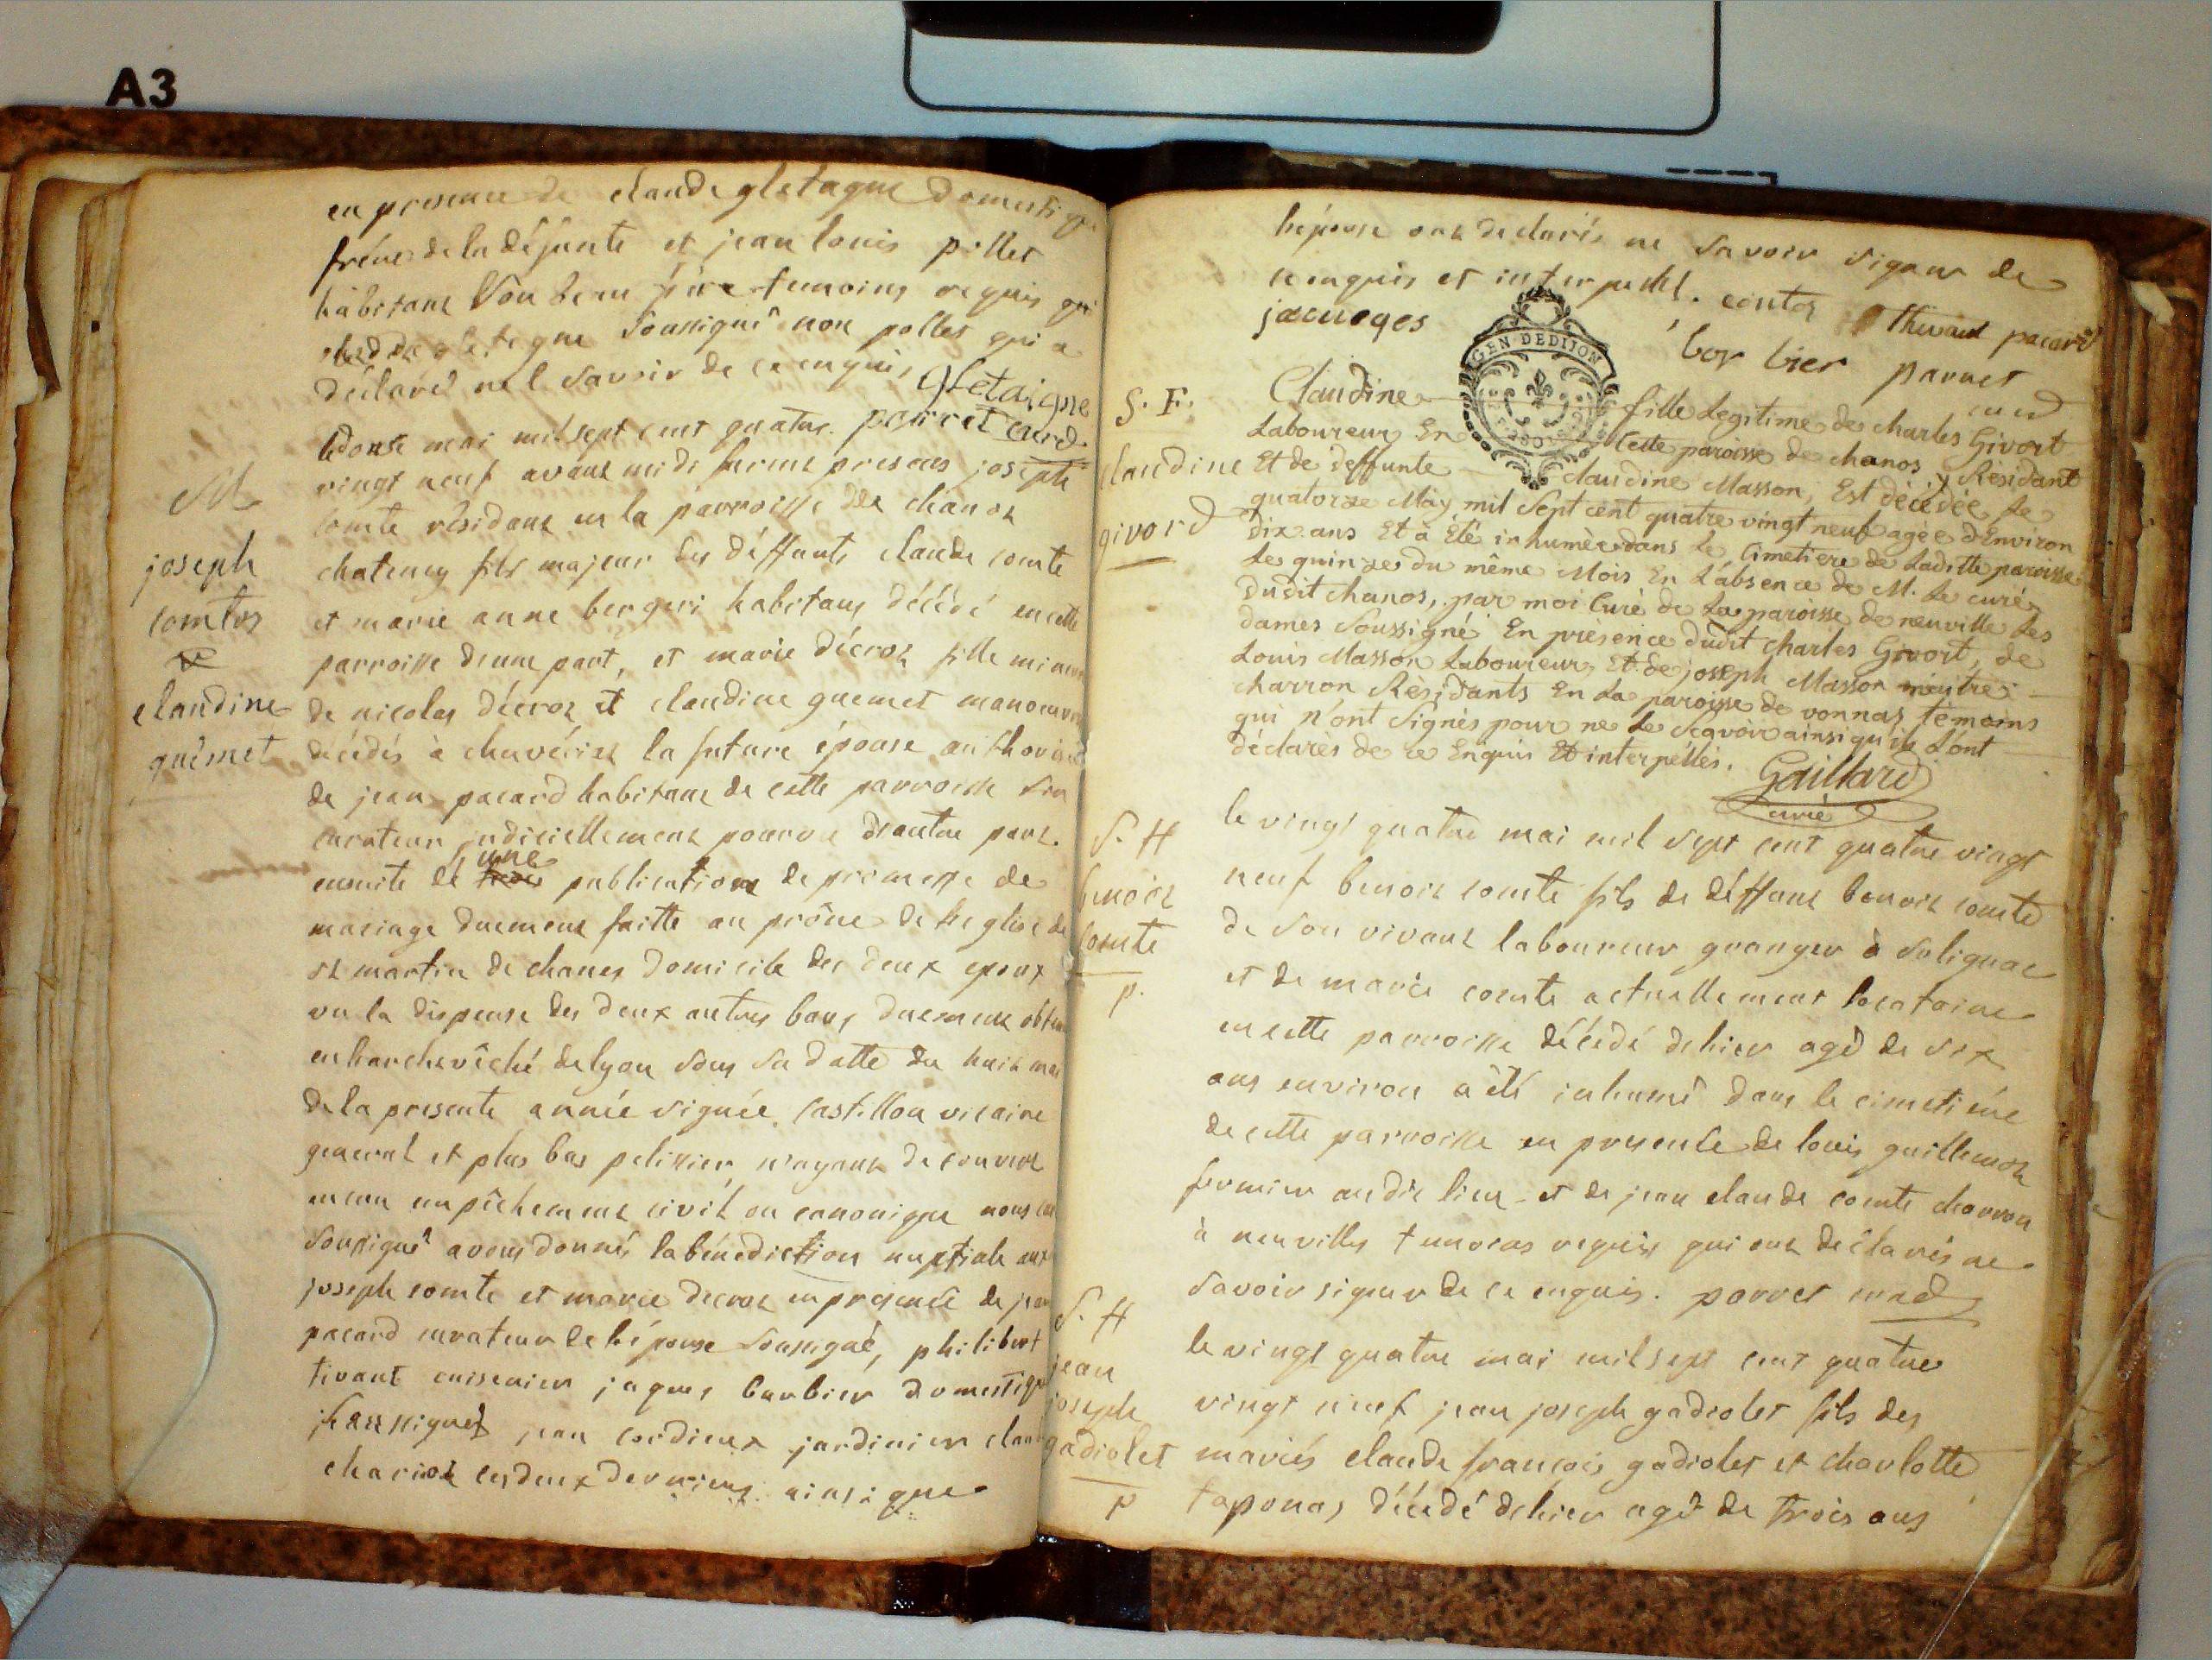 A3
en presence de claude gletagne domestique
frére de la défunte et jean louis pollet
habitant son beau pére temoins requis qui
gletagne soussigné non pollet qui a
déclaré ne l savoir de ce enquis gletaigne
perret curé
le douse mai mil sept cent quatre
vingt neuf avant midi furent presens joseph
comte résidant en la parroisse de chanos
chatenay fils majeur des déffunts claude comte
et marie anne bergeri habitans décédé en cette
parroisse d'une part, et marie décroz fille mineure
de nicolas décroz et claudine guemet manouvri
décédés à chavéiriat la future épouse authorisée
de jean pacard habitant de cette parroisse son
curateur judiciellement pourvu d'autre part.
ensuite de une publication de promesse de
mariage duement faitte au prône de l'eglise de
st martin de chanos domicile des deux epoux
vu la dispense des deux autres bans duement obtenu
en l'archevêché de lyon sous sa datte du huit mai
de la presente année signée castillon vicaire
general et plus bas pelissier n'ayant decouvert
aucun empêchement civil ou canonique nous curé
soussigné avons donné la bénediction nuptiale aux
joseph comte et marie decroz en presence de jean
pacard curateur de l'épouse soussigné, philibert
tivant cuisenier jaques barbier domestique
soussignés jean cordieux jardinier claude
chariot ces deux derniers ainsi que
M
joseph
comtes
claudine
guémet
l'épouse ont declarés ne savoir signer de
ce enquis et interpellé. contes Thivant pacard
jacueqes bar bier parret
curé
GEN DE DIJON
S. F.
claudine
givord
Claudine fille Legitime de charles Givort
Laboureur En Cette paroisse de chanos y Résidant
Et de deffunte claudine Masson, Est décédée Le
quatorze May mil Sept cent quatre vingt neuf agée dEnviron
dix ans Et à Eté inhumée dans Le Cimetiere de Laditte paroisse
Le quinze du même Mois En L'absence de M. Le curé
dudit chanos, par moi Curé de La paroisse de neuville Les
dames Soussigné En présence dudit charles Givort, de
Louis Masson Laboureur, Et de joseph Masson maitre
charron Résidants En La paroisse de vonnas témoins
qui n'ont Signés pour ne Le Sçavoir ainsi qu'ils L'ont
déclarés de ce Enquis Et interpéllés. Gaillard
curé
S. H
benoit
comte
p.
le vingt quatre mai mil sept cent quatre vingt
neuf benoit comte fils de déffunt benoit comte
de son vivant laboureur granger à solignac
et de marie comte actuellement locataire
en cette parroisse décédé d'hier agé de six
ans environ a été inhumé dans le cimetiére
de cette parroisse en presence de louis guillemot
fermier audit lieu et de jean claude comte charron
à neuvilles temoins requis qui ont declarés ne
savoir signer de ce enquis. parret curé
S. H
jean
joseph
gadiolet
p
le vingt quatre mai mil sept cent quatre
vingt neuf jean joseph gadiolet fils des
mariés claude françois gadiolet et charlotte
taponas décédé d'hier agé de trois ans